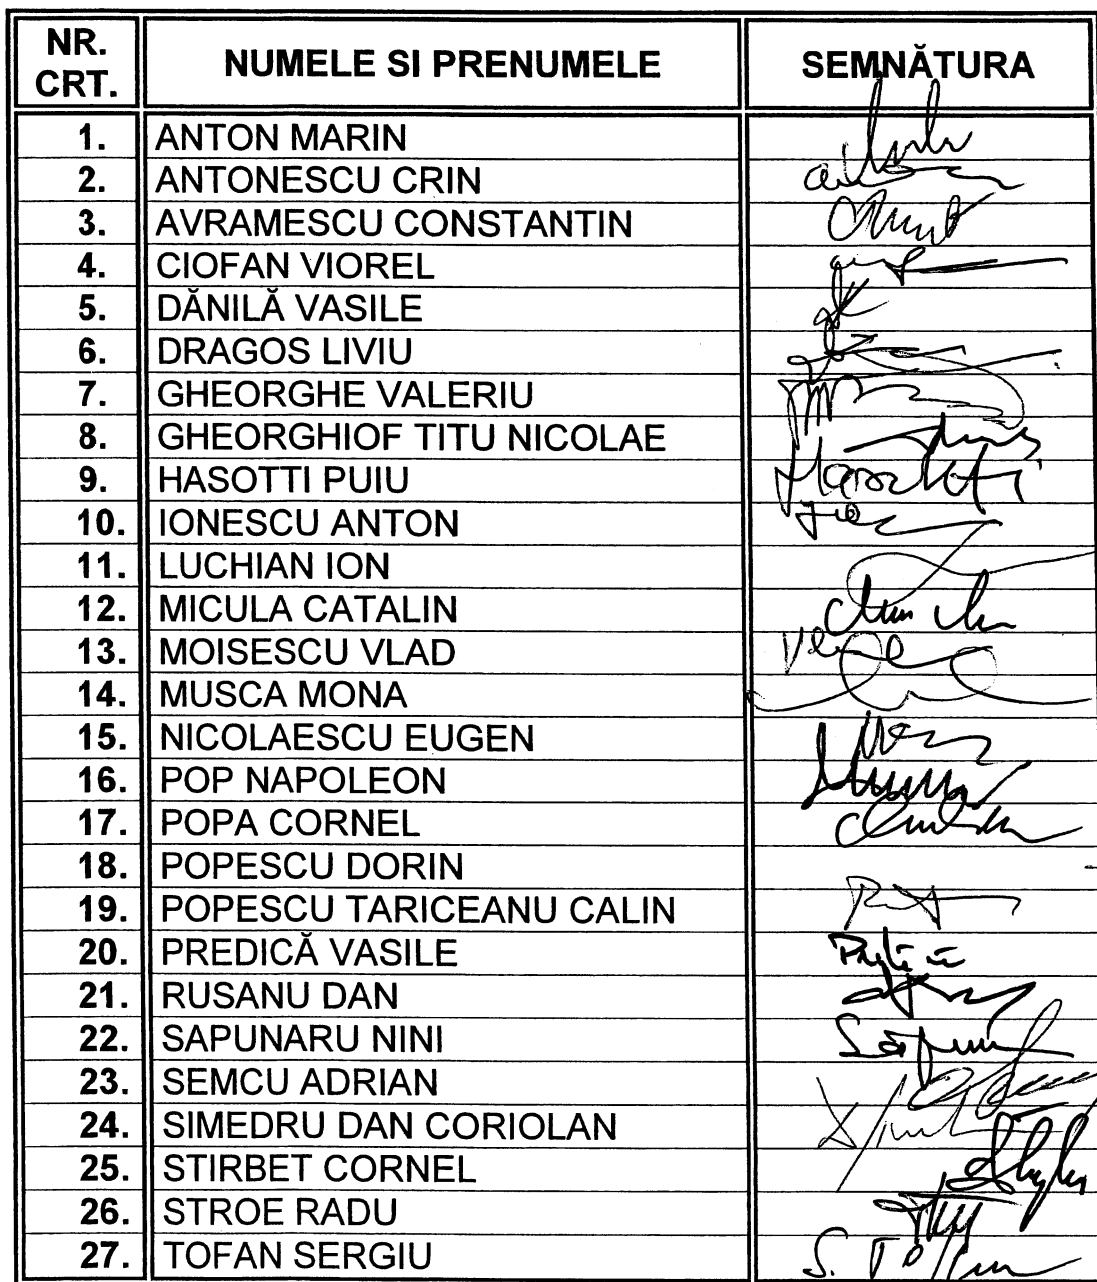 NR. CRT. NUMELE SI PRENUMELE SEMNĂTURA
1. ANTON MARIN
2. ANTONESCU CRIN
3. AVRAMESCU CONSTANTIN
4. CIOFAN VIOREL
5. DĂNILĂ VASILE
6. DRAGOS LIVIU
7. GHEORGHE VALERIU
8. GHEORGHIOF TITU NICOLAE
9. HASOTTI PUIU
10. IONESCU ANTON
11. LUCHIAN ION
12. MICULA CATALIN
13. MOISESCU VLAD
14. MUSCA MONA
15. NICOLAESCU EUGEN
16. POP NAPOLEON
17. POPA CORNEL
18. POPESCU DORIN
19. POPESCU TARICEANU CALIN
20. PREDICĂ VASILE
21. RUSANU DAN
22. SAPUNARU NINI
23. SEMCU ADRIAN
24. SIMEDRU DAN CORIOLAN
25. STIRBET CORNEL
26. STROE RADU
27. TOFAN SERGIU